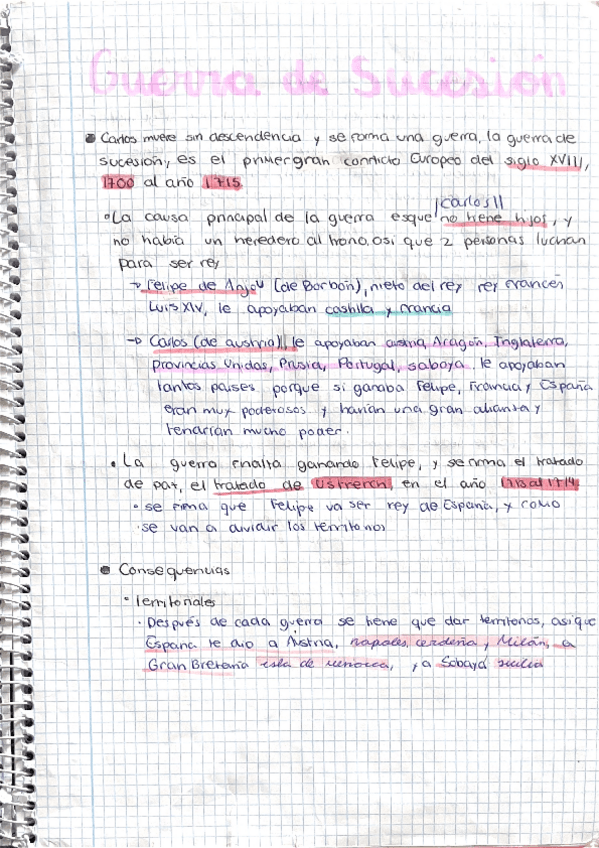 Guerra de Sucesión
Carlos muere sin descendencia y se forma una guerra, la guerra de
sucesión, es el primer gran conflicto Europeo del siglo XVIII,
1700 al año 1715.
La causa principal de la guerra es que Carlos II no tiene hijos, y
no había un heredero al trono, asi que 2 personas luchan
para ser rey
→ Felipe de Anjou (de Borbón), nieto del rey rey francés
Luis XIV, le apoyaban castilla y francia
→ Carlos (de austria), le apoyaban austria, Aragón, Inglaterra,
provincias Unidas, Prusia, Portugal, saboya. le apoyaban
tantos paises porque si ganaba Felipe, Francia y España
eran muy poderosos y harían una gran alianza y
tendrían mucho poder.
La guerra finaliza ganando Felipe, y se firma el tratado
de paz, el tratado de Ustrech, en el año 1713 al 1714
se firma que Felipe va ser rey de España, y como
se van a dividir los territorios
Consequencias
Territoriales
Después de cada guerra se tiene que dar territorios, asi que
España le dio a Austria, napoles, cerdeña y Milán, a
Gran Bretaña isla de menorca, y a Sobaya sicilia